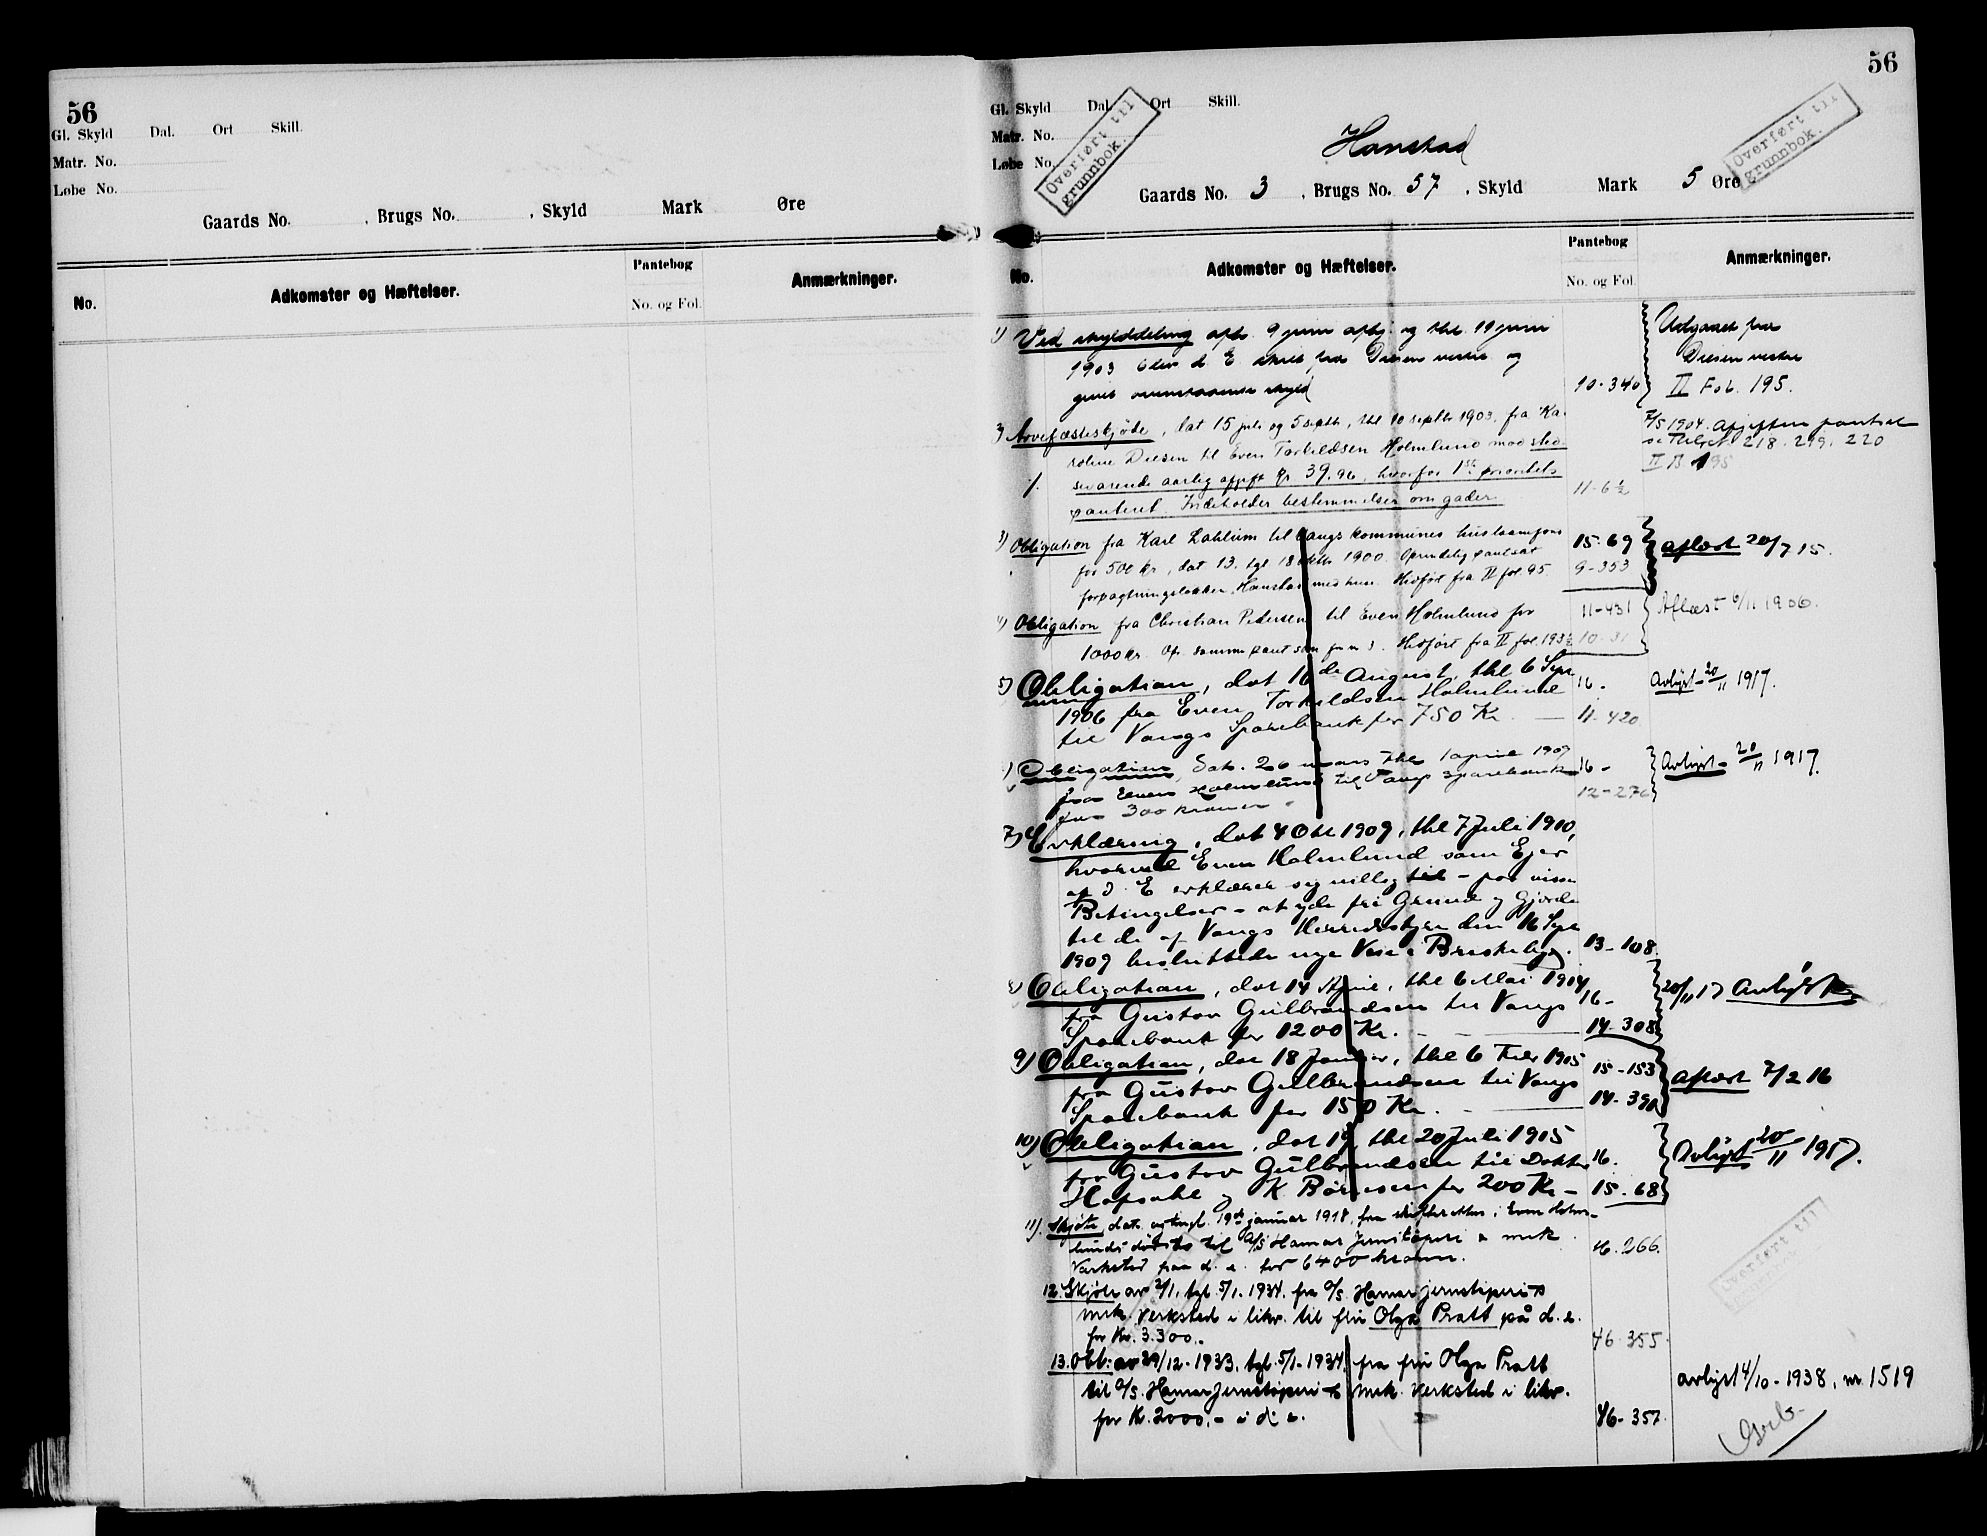 56
Gl. Skyld Dal. Ort Skill.
Matr. No.
Løbe No.
Gaards No. , Brugs No. , Skyld Mark Øre
No. Adkomster og Hæftelser. Pantebog No. og Fol. Anmærkninger.
56
Gl. Skyld Dal. Ort Skill.
Matr. No.
Løbe No.
Overført til grunnbok.
Overført til grunnbok.
Hanstad
Gaards No. 3 , Brugs No. 57 , Skyld Mark 5 Øre
No. Adkomster og Hæftelser. Pantebog No. og Fol. Anmærkninger.
1) Ved skylddeling afh. 9 juni og thl. 11 juni
1903 blev d. E. skilt fra Diesen vestre og
givet ovenstaaende skyld 10-340
Udgaaet fra
Diesen vestre
II Fol. 195.
2) Arvefæsteskjøde, dat 15 juli og 5 septbr, thl 10 septbr 1903. fra Ka-
roline Diesen til Even Torkildsen Holmlund mod sted-
sevarende aarlig afgift kr 39.96, hvorfor 1ste prioritets
panteret. Indeholder bestemmelser om gader. 11-6½
7/5 1904. Afgiften pantsat
218. 219, 220
II B 195
3) Obligation fra Karl Lohlum til Vangs kommunes husbankfond
for 500 kr, dat 13. tgl 18 oktbr 1900. Oprindelig pantsat
forpagtningslokken Hanstad med huse. Hidført fra II fol. 95.
15-69
9-353
aflæst 20/7 15.
4) Obligation fra Christian Pedersen til Even Holmlund for
1000 kr. Op. samme pant som for n. 3. Hidført fra II fol. 193½
11-431
10-31
Aflæst 6/11 1906.
5) Obligation, dat 16de August, thl 6 Sepr
1906 fra Even Torkildsen Holmlund
til Vangs Sparebank for 750 Kr.
16-
11-420
Avlyst 20/11 1917.
6) Obligation, Dat. 26 mars thl 1 april 1909
fra Even Holmlund til Vang sparebank
for 300 kroner
16-
12-276
Avlyst 20/11 1917.
7) Erklæring, dat 4 Okt 1909, thl 7 Juli 1910,
hvorved Even Holmlund som Ejer
af d. E erklærer sig villig til - paa visse
Betingelser - at yde fri Grund og Gjerde
til de af Vangs Herredsstyre den 16 Sepr
1909 besluttede nye Veie i Briskebyen. 13-108.
8) Obligation, dat 14 April, thl 6 Mai 1914
fra Gustav Gulbrandsen til Vangs
Sparebank for 1200 Kr.
16-
14-308
20/11 17 Avlyst
9) Obligation, dat 18 Januar, thl 6 Febr 1915
fra Gustav Gulbrandsen til Vangs
Sparebank for 150 Kr.
15-153
14-391
aflæst 7/2 16
10) Obligation, dat 19, thl 20 Juli 1915
fra Gustav Gulbrandsen til Doktor
Hofsahl og K. Børresen for 200 Kr -
16.
15-68
Avlyst 20/11 1917.
11) Skjøte, dat. og tingl. 19de januar 1918, fra skifteretten i Even Holm-
lunds dødsbo til A/S Hamar Jernstøperi & mek.
Værksted paa d. e. for 6400 kroner. 16.266.
12. Skjøte av 2/1, tgl. 5/1. 1934. fra A/S. Hamar jernstøperi &
mek. Verksted i likv. til frū Olga Pratt på d. e.
for Kr. 3.300.- 46-355.
Overført til
13. Obl: av 29/12-1933, tgl. 5/1-1934 fra frū Olga Pratt
til A/S. Hamar Jernstøperi & mek. Verksted i likv.
for Kr. 2000.- i d. e. 46-357.
avlyst 4/10-1938, nr. 1519